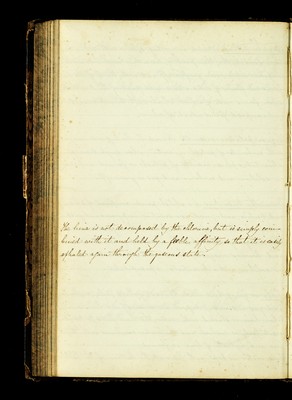 The lime is not decomposed by the chlorine, but is simply com-
bined with it and held by a feeble affinity so that it is easily
again through the gaseous state.